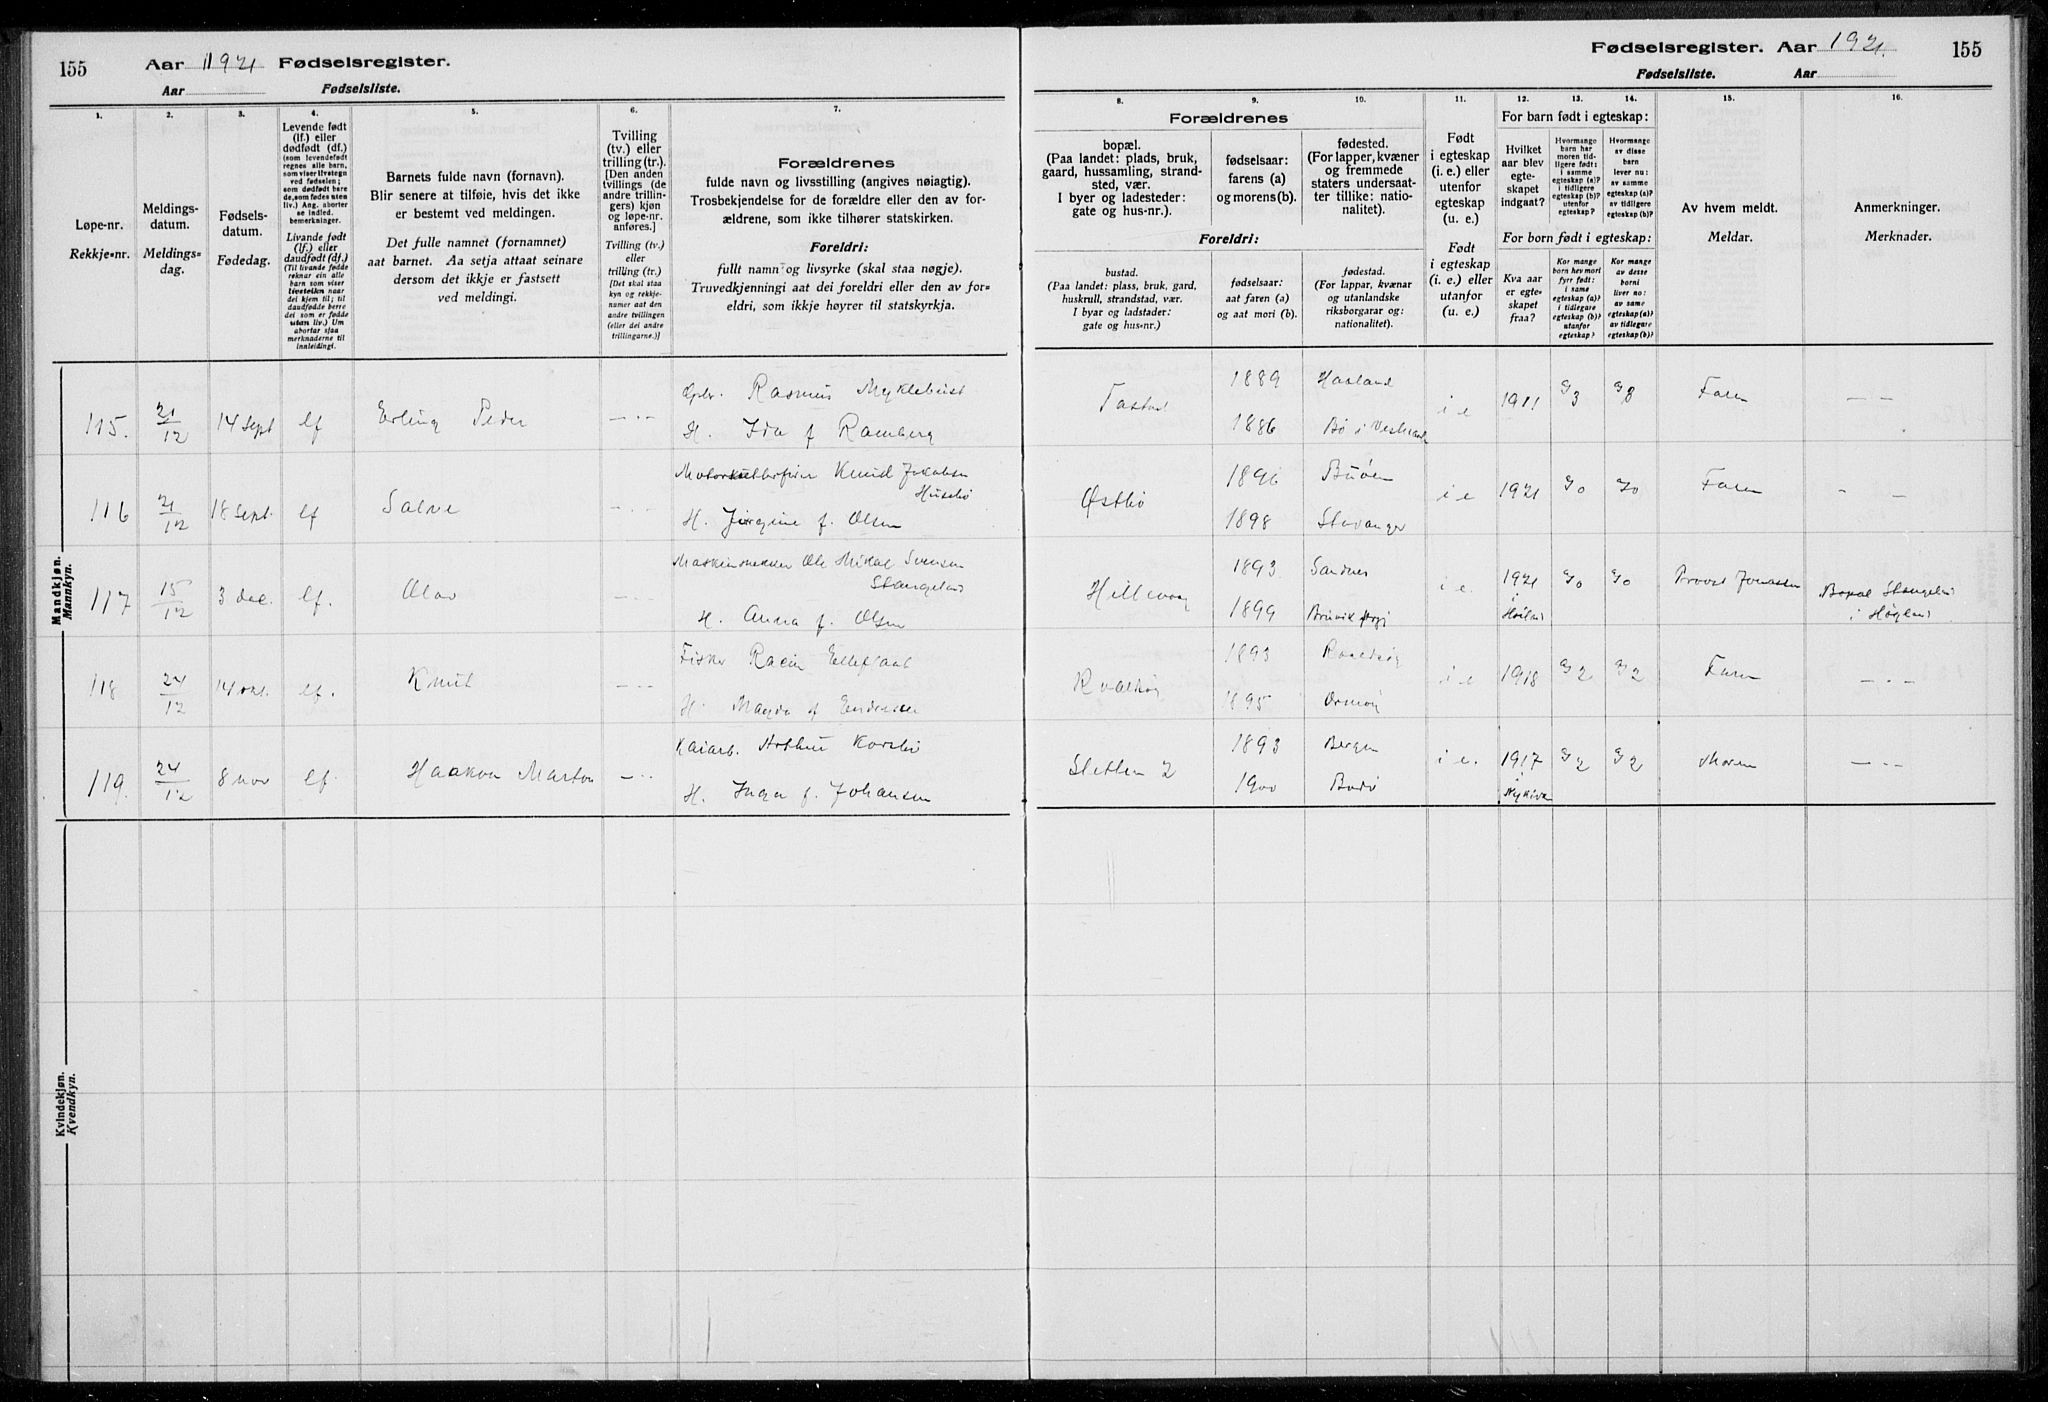 155
Aar 1921 Fødselsregister.
Aar Fødselsliste.
1.
2.
3.
4.
5.
6.
7.
Løpe-nr.
Rekkje-nr.
Meldings-
datum.
Meldings-
dag.
Fødsels-
datum.
Fødedag.
Levende født
(lf.) eller
dødfødt (df.)
(som levendefødt
regnes alle barn,
som viser livstegn
ved fødselen;
som dødfødt bare
de, som fødes uten
liv.) Ang. aborter
se indled.
bemerkninger.
Livande født
(lf.) eller
daudfødt (df.)
(Til livande fødde
reknar ein alle
barn som viser
livsteikn naar
dei kjem til; til
daudfødde berre
dei som er fødde
utan liv.) Um
abortar sjaa
merknaderne til
innleidingi.
Barnets fulde navn (fornavn).
Blir senere at tilføie, hvis det ikke
er bestemt ved meldingen.
Det fulle namnet (fornamnet)
aat barnet. Aa setja attaat seinare
dersom det ikkje er fastsett
ved meldingi.
Tvilling
(tv.) eller
trilling (tr.).
[Den anden
tvillings (de
andre trillin-
gers) kjøn
og løpe-nr.
anføres.]
Tvilling (tv.)
eller
trilling (tr.)
[Det skal staa
kyn og rekkje-
numer aat den
andre tvillingen
(eller dei andre
trillingarne.)]
Forældrenes
fulde navn og livsstilling (angives nøiagtig).
Trosbekjendelse for de forældre eller den av for-
ældrene, som ikke tilhører statskirken.
Foreldri:
fullt namn og livsyrke (skal staa nøgje).
Truvedkjenningi aat dei foreldri eller den av for-
eldri, som ikkje høyrer til statskyrkja.
Mandkjøn.
Mannkyn.
115.
21/12
14 sept
lf
Erling Peder
— · —
Rasmus Myklebust
H. Ida f Ramberg
116
21/12
18 sept.
lf
Salve
— · —
Knud Jakobsen
Husebø
H. Jørgine f. Olsen
117
15/12
3 dec.
lf.
Olav
— · —
Ole Mikal Svensen
Stangeland
H. Anna f. Olsen
118
24/12
14 okt.
lf.
Knut
— · —
Fisker
H. Magda f
119.
24/12
8 nov
lf.
Haakon Marton
— · —
Kaiarb. Arthur
H. Inga f. Johansen
Kvindekjøn.
Kvendkyn.
Fødselsregister. Aar 1921.
155
Fødselsliste. Aar
8.
9.
10.
11.
12.
13.
14.
15.
16.
Forældrenes
bopæl.
(Paa landet: plads, bruk,
gaard, hussamling, strand-
sted, vær.
I byer og ladesteder:
gate og hus-nr.).
fødselsaar:
farens (a)
og morens (b).
fødested.
(For lapper, kvæner
og fremmede
staters undersaat-
ter tillike: natio-
nalitet).
Foreldri:
bustad.
(Paa landet: plass, bruk, gard,
huskrull, strandstad, vær.
I byar og ladstader:
gate og hus-nr.)
fødselsaar:
aat faren (a)
og aat mori (b).
fødestad.
(For lappar, kvænar
og utanlandske
riksborgarar og:
nationalitet).
Født
i egteskap
(i. e.) eller
utenfor
egteskap
(u. e.)
Født
i egteskap
(i. e.) eller
utanfor
(u. e.)
For barn født i egteskap:
Hvilket
aar blev
egte-
skapet
indgaat?
Hvormange
barn har
moren tid-
ligere født:
i samme
egteskap (a)?
i tidligere
egteskap (b)?
utenfor
egteskap?
Hvormange
av disse
barn
lever nu:
av samme
egteskap (a)?
av tidligere
egteskap (b)?
For born født i egteskap:
Kva aar
er egte-
skapet
fraa?
Kor mange
born hev mori
fyrr født:
i same
egteskap (a)?
i tidlegare
egteskap (b)?
utanfor
egteskap?
Kor mange
av desse
borni
liver no:
av same
egteskap (a)?
av tidlegare
egteskap (b)?
Av hvem meldt.
Meldar.
Anmerkninger.
Merknader.
1889
1886
i e
1911
Faren
— · —
Østbø
1896
1898
Buøen
Stavanger
i e
1921
Faren
Hillevaag
1893.
1899
Sandnes
i e.
1921
i
Høiland
Provst Jonassen
Bopæl Stangeland
i Høyland
1893
1895
Ormøy
i e
1918
Faren
— · —
1893
1900
Bergen
Bodø
i e.
1917
Moren
— · —